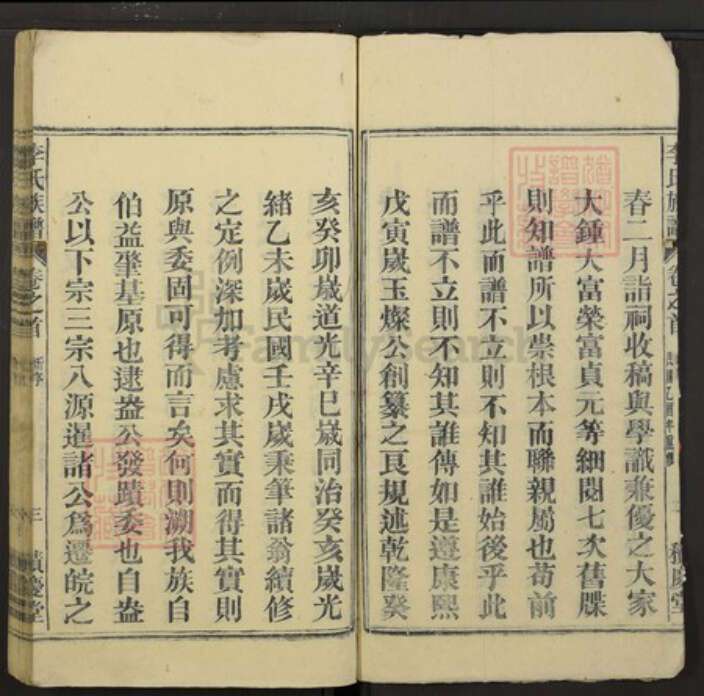 李氏族譜 卷之首 民國乙酉年重修
春二月詣祠收稿與學識兼優之大家
大鍾大富榮富貞元等細閱七次舊牒
則知譜所以崇根本而聯親屬也苟前
乎此而譜不立則不知其誰始後乎此
而譜不立則不知其誰傳如是遵康熙
戊寅歲玉燦公創纂之良規述乾隆癸
亥癸卯歲道光辛巳歲同治癸亥歲光
緒乙未歲民國壬戌歲秉筆諸翁續修
之定例深加考慮求其實而得其實則
原與委固可得而言矣何則溯我族自
伯益肇基原也逮盎公發蹟委也自盎
公以下宗三宗八源暹諸公爲遷皖之
李氏族譜 卷之首 新序 三 積慶堂
FamilySearch